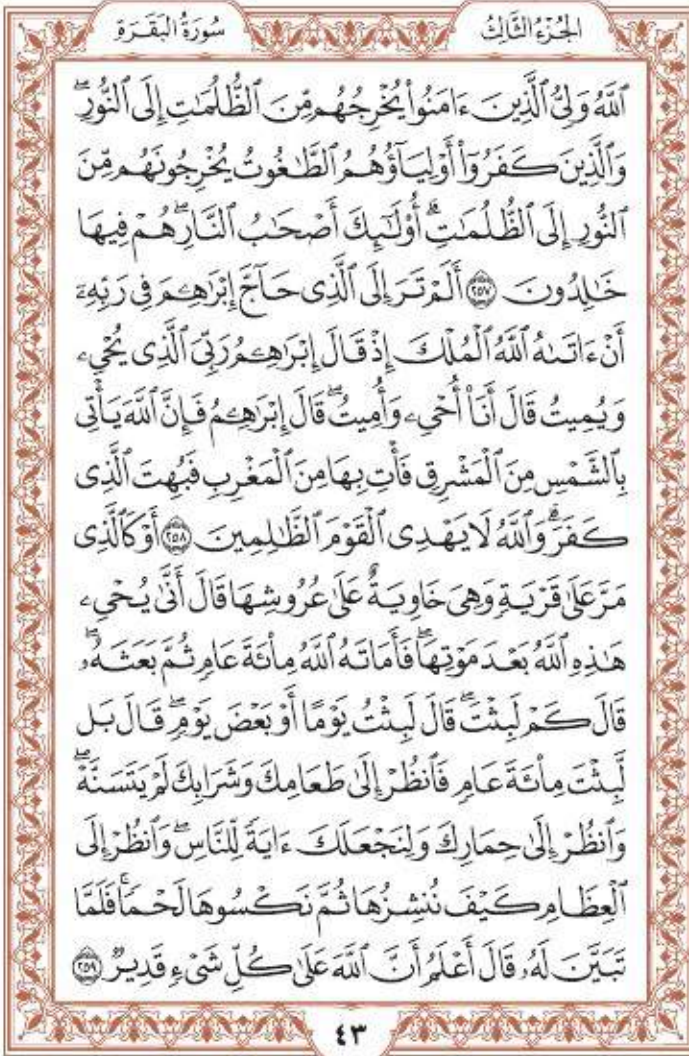 الجُزْءُ الثَّالِثُ
سُورَةُ البَقَرَةِ
ٱللَّهُ وَلِيُّ ٱلَّذِينَ ءَامَنُوا۟ يُخْرِجُهُم مِّنَ ٱلظُّلُمَٰتِ إِلَى ٱلنُّورِۖ
وَٱلَّذِينَ كَفَرُوٓا۟ أَوْلِيَآؤُهُمُ ٱلطَّٰغُوتُ يُخْرِجُونَهُم مِّنَ
ٱلنُّورِ إِلَى ٱلظُّلُمَٰتِۗ أُو۟لَٰٓئِكَ أَصْحَٰبُ ٱلنَّارِۖ هُمْ فِيهَا
خَٰلِدُونَ ٢٥٧ أَلَمْ تَرَ إِلَى ٱلَّذِى حَآجَّ إِبْرَٰهِـۧمَ فِى رَبِّهِۦٓ
أَنْ ءَاتَىٰهُ ٱللَّهُ ٱلْمُلْكَ إِذْ قَالَ إِبْرَٰهِـۧمُ رَبِّىَ ٱلَّذِى يُحْىِۦ
وَيُمِيتُ قَالَ أَنَا۠ أُحْىِۦ وَأُمِيتُۖ قَالَ إِبْرَٰهِـۧمُ فَإِنَّ ٱللَّهَ يَأْتِى
بِٱلشَّمْسِ مِنَ ٱلْمَشْرِقِ فَأْتِ بِهَا مِنَ ٱلْمَغْرِبِ فَبُهِتَ ٱلَّذِى
كَفَرَۗ وَٱللَّهُ لَا يَهْدِى ٱلْقَوْمَ ٱلظَّٰلِمِينَ ٢٥٨ أَوْ كَٱلَّذِى
مَرَّ عَلَىٰ قَرْيَةٍ وَهِىَ خَاوِيَةٌ عَلَىٰ عُرُوشِهَا قَالَ أَنَّىٰ يُحْىِۦ
هَٰذِهِ ٱللَّهُ بَعْدَ مَوْتِهَاۖ فَأَمَاتَهُ ٱللَّهُ مِا۟ئَةَ عَامٍ ثُمَّ بَعَثَهُۥۖ
قَالَ كَمْ لَبِثْتَۖ قَالَ لَبِثْتُ يَوْمًا أَوْ بَعْضَ يَوْمٍۖ قَالَ بَل
لَّبِثْتَ مِا۟ئَةَ عَامٍ فَٱنظُرْ إِلَىٰ طَعَامِكَ وَشَرَابِكَ لَمْ يَتَسَنَّهْۖ
وَٱنظُرْ إِلَىٰ حِمَارِكَ وَلِنَجْعَلَكَ ءَايَةً لِّلنَّاسِۖ وَٱنظُرْ إِلَى
ٱلْعِظَامِ كَيْفَ نُنشِزُهَا ثُمَّ نَكْسُوهَا لَحْمًاۚ فَلَمَّا
تَبَيَّنَ لَهُۥ قَالَ أَعْلَمُ أَنَّ ٱللَّهَ عَلَىٰ كُلِّ شَىْءٍ قَدِيرٌ ٢٥٩
٤٣